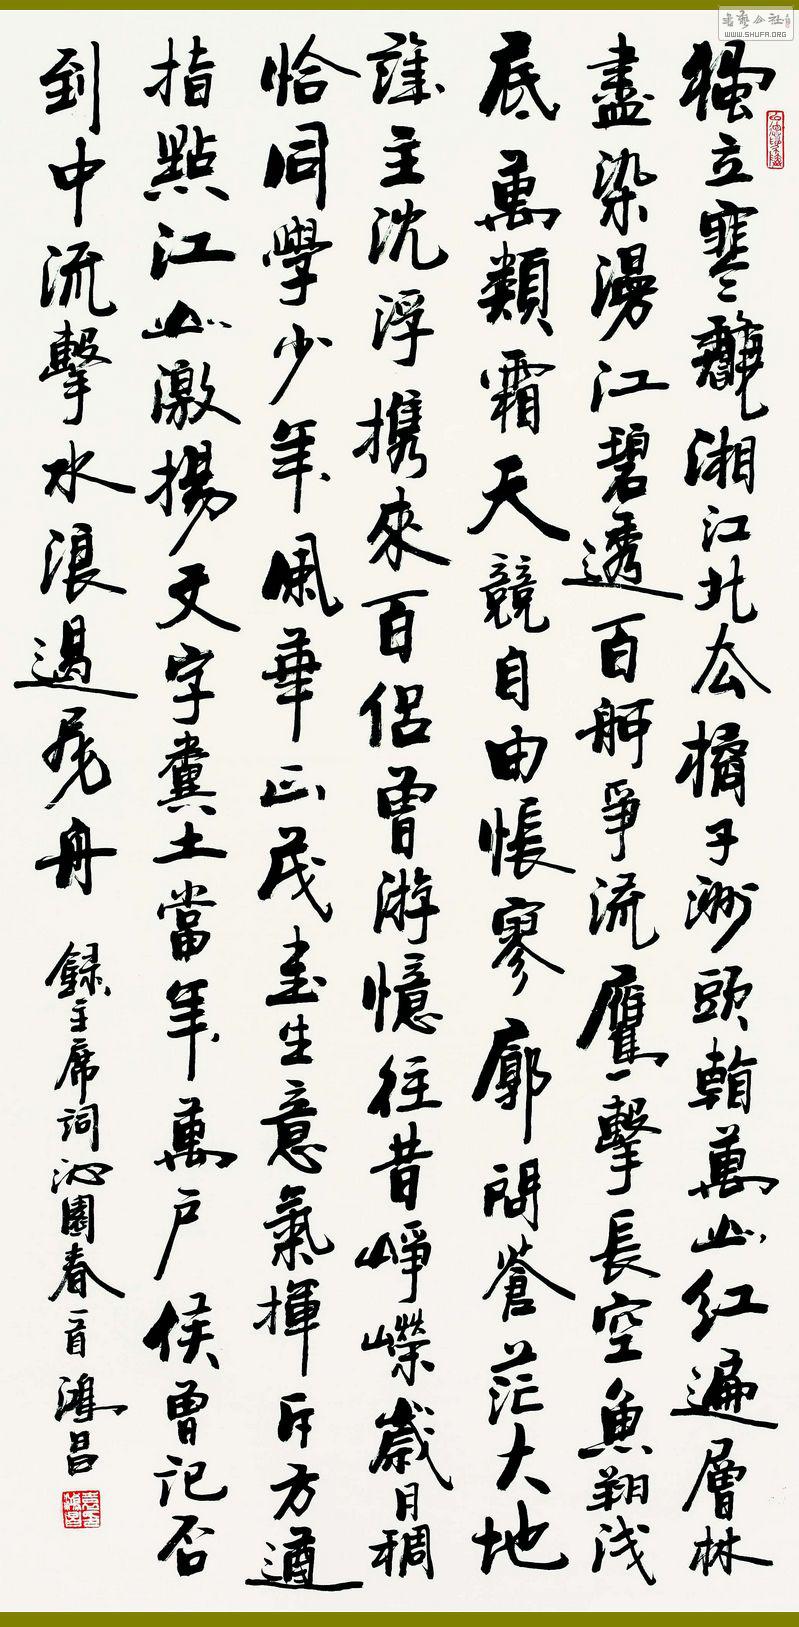 獨立寒龝湘江北去橘子洲頭看萬山紅遍層林
盡染漫江碧透百舸爭流鷹擊長空魚翔浅
底萬類霜天競自由悵寥廓問蒼茫大地
誰主沈浮携來百侶曾游憶往昔崢嶸歲月稠
恰同學少年風華正茂書生意氣揮斥方遒
指點江山激揚文字糞土當年萬戶侯曾記否
到中流擊水浪遏飛舟 錄主席詞沁園春一首 鴻昌
書藝公社
WWW.SHUFA.ORG